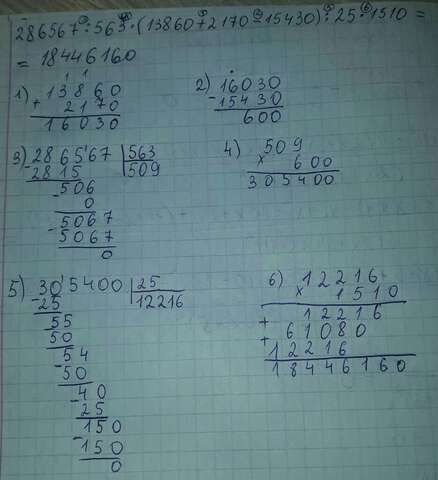 286567:563·(13860+2170-15430):25·1510=
=18446160
1) 13860
+ 2170
16030
2) 16030
-15430
600
3) 286567 | 563
-2815 | 509
-506
0
-5067
5067
0
4) 509
× 600
305400
5) 305400 | 25
-25 | 12216
55
50
-54
50
-40
25
-150
150
0
6) 12216
× 1510
12216
+ 61080
+ 12216
18446160